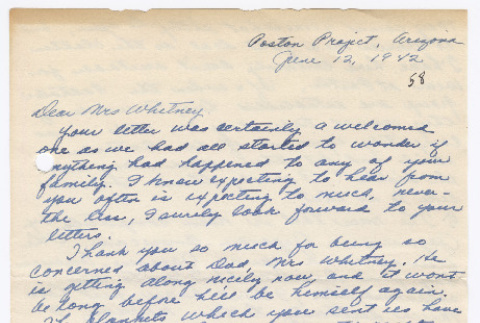 Poston Project, Arizona
June 12, 1942
58
Dear Mrs Whitney.
Your letter was certainly a welcomed
one as we had all started to wonder if
anything had happened to any of your
family. I know expecting to hear from
you often is expecting to much, never-
the less, I surely look forward to your
letters.
Thank you so much for being so
concerned about Dad, Mrs Whitney. He
is getting along nicely now and it wont
be long before he'll be himself again.
blankets which you sent us have